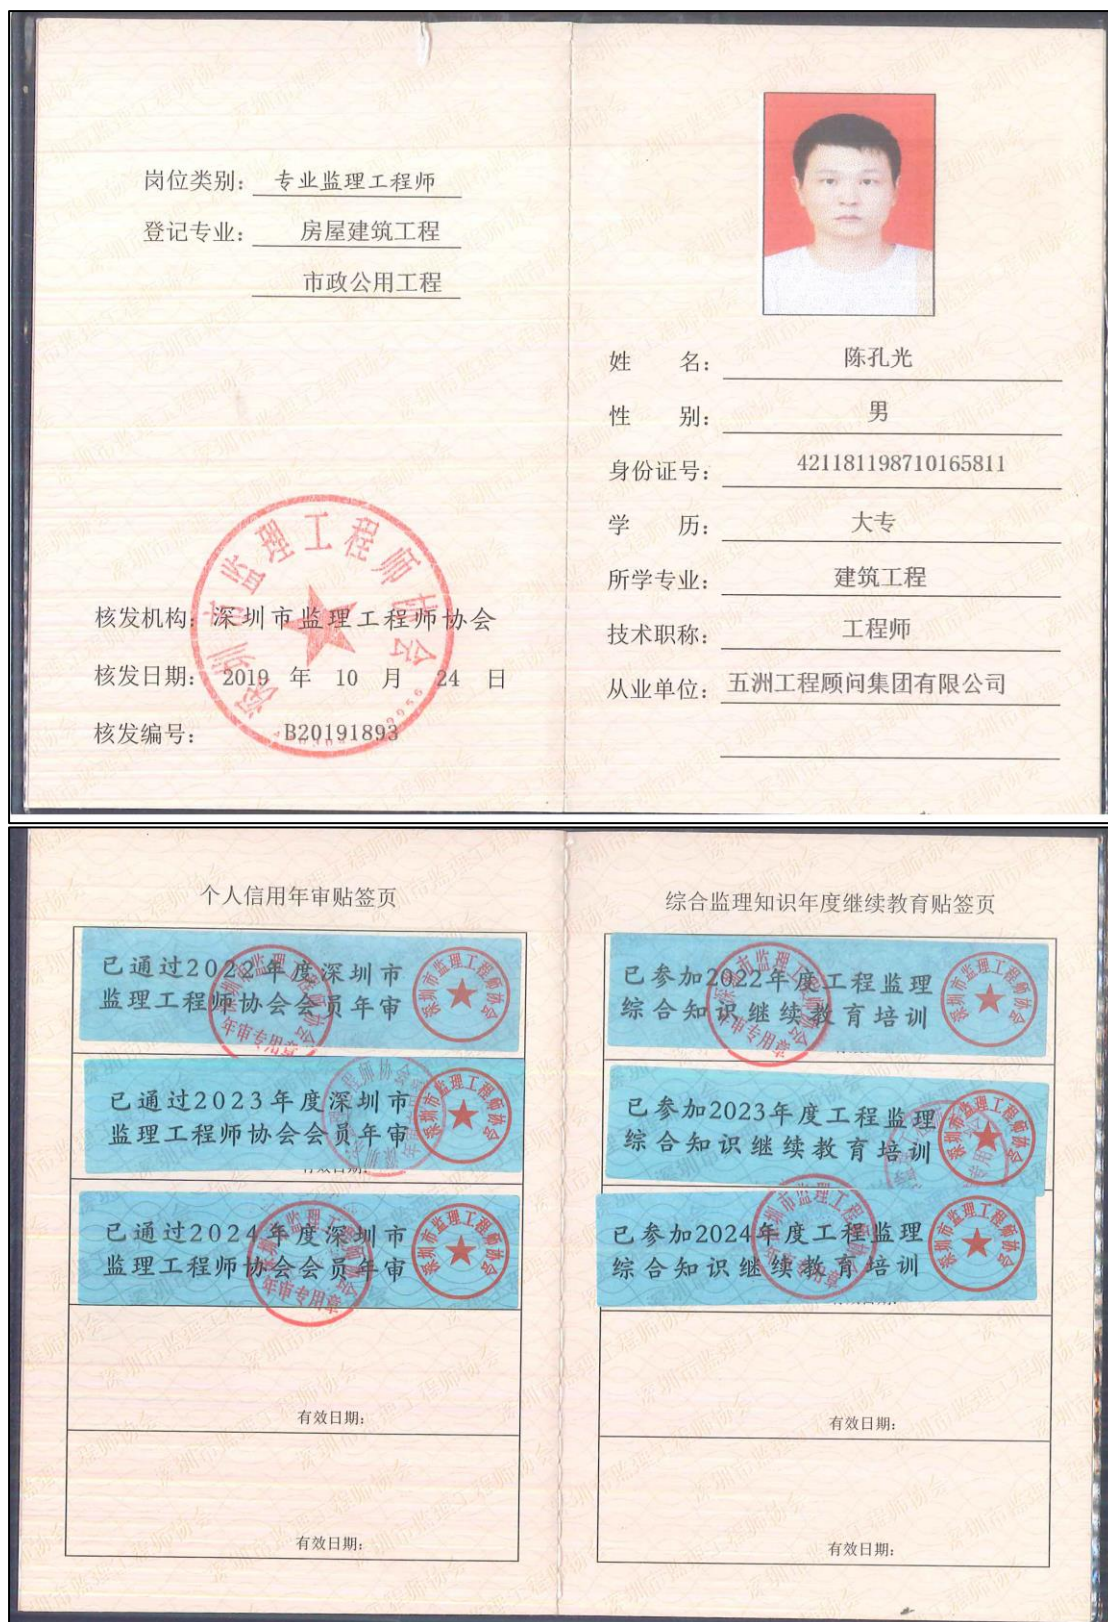 岗位类别：专业监理工程师
登记专业：房屋建筑工程
市政公用工程
核发机构：深圳市监理工程师协会
核发日期：2019 年 10 月 24 日
核发编号：B20191893
深圳市监理工程师协会
姓 名：陈孔光
性 别：男
身份证号：421181198710165811
学 历：大专
所学专业：建筑工程
技术职称：工程师
从业单位：五洲工程顾问集团有限公司
个人信用年审贴签页
已通过2022年度深圳市
监理工程师协会会员年审
深圳市监理工程师协会
年审专用章
已通过2023年度深圳市
监理工程师协会会员年审
深圳市监理工程师协会
有效日期：
已通过2024年度深圳市
监理工程师协会会员年审
深圳市监理工程师协会
年审专用章
有效日期：
有效日期：
综合监理知识年度继续教育贴签页
已参加2022年度工程监理
综合知识继续教育培训
深圳市监理工程师协会
年审专用章
已参加2023年度工程监理
综合知识继续教育培训
深圳市监理工程师协会
已参加2024年度工程监理
综合知识继续教育培训
深圳市监理工程师协会
有效日期：
有效日期：